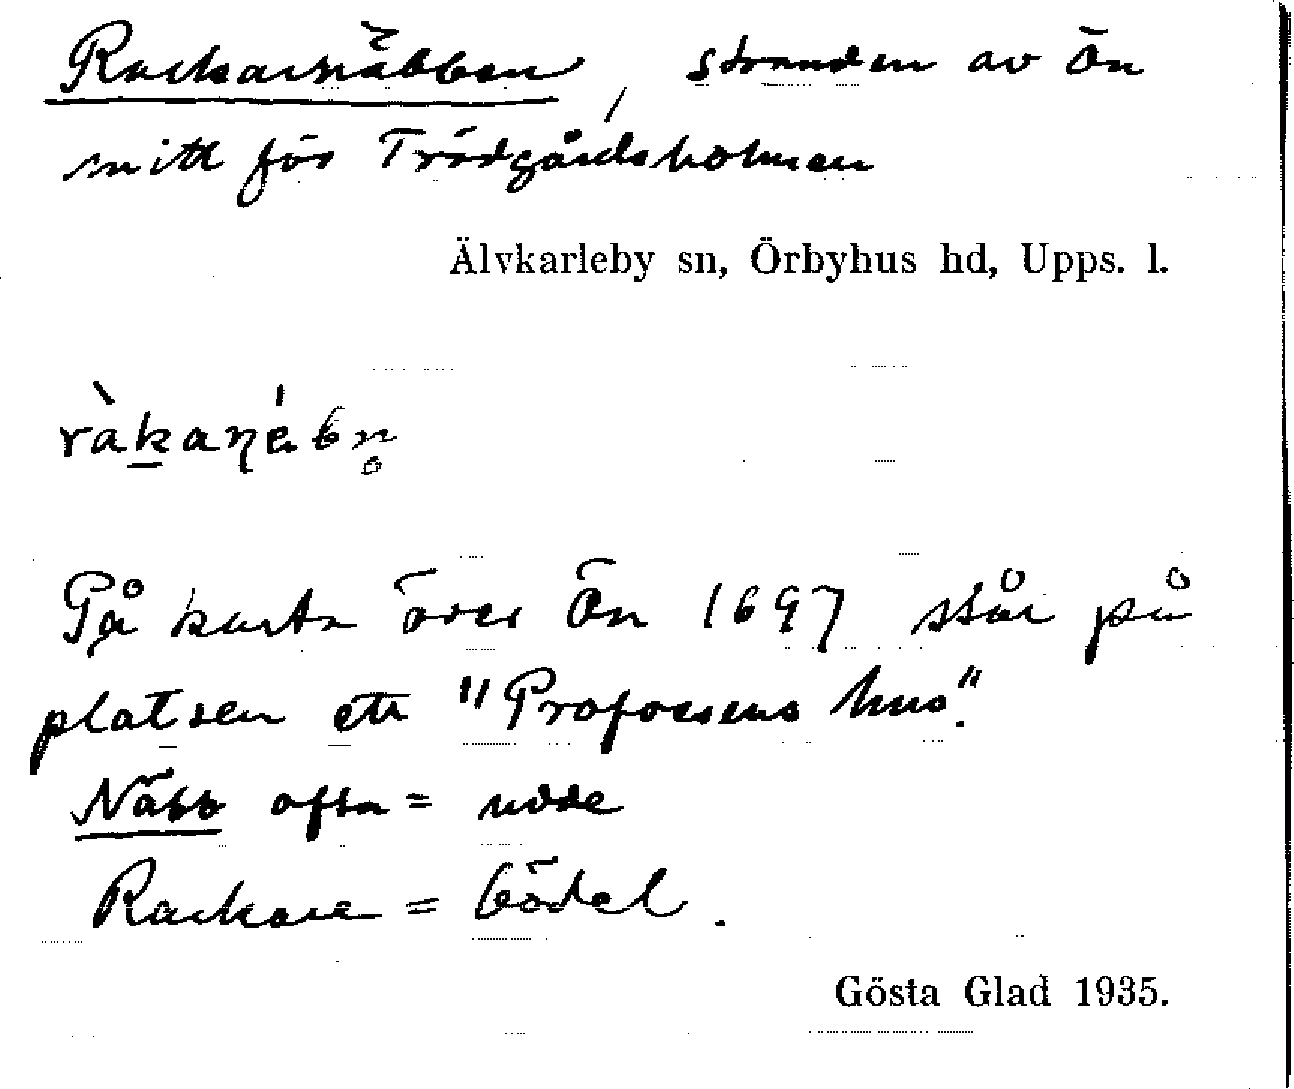 Rackarnäbben, stranden av Ön
mitt för Trädgårdsholmen
Älvkarleby sn, Örbyhus hd, Upps. l.
På karta över Ön 1697 står på
platsen ett "Profossens hus".
Näbb ofta = udde
Rackare = bödel.
Gösta Glad 1935.